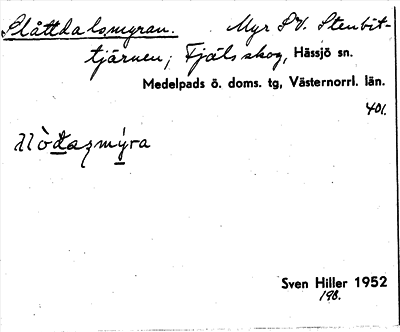 Slåttdalsmyran. Myr SV. Stenbit-
tjärnen, Fjälsskog, Hässjö sn.
Medelpads ö. doms. tg, Västernorrl. län.
401.
Sven Hiller 1952
198.